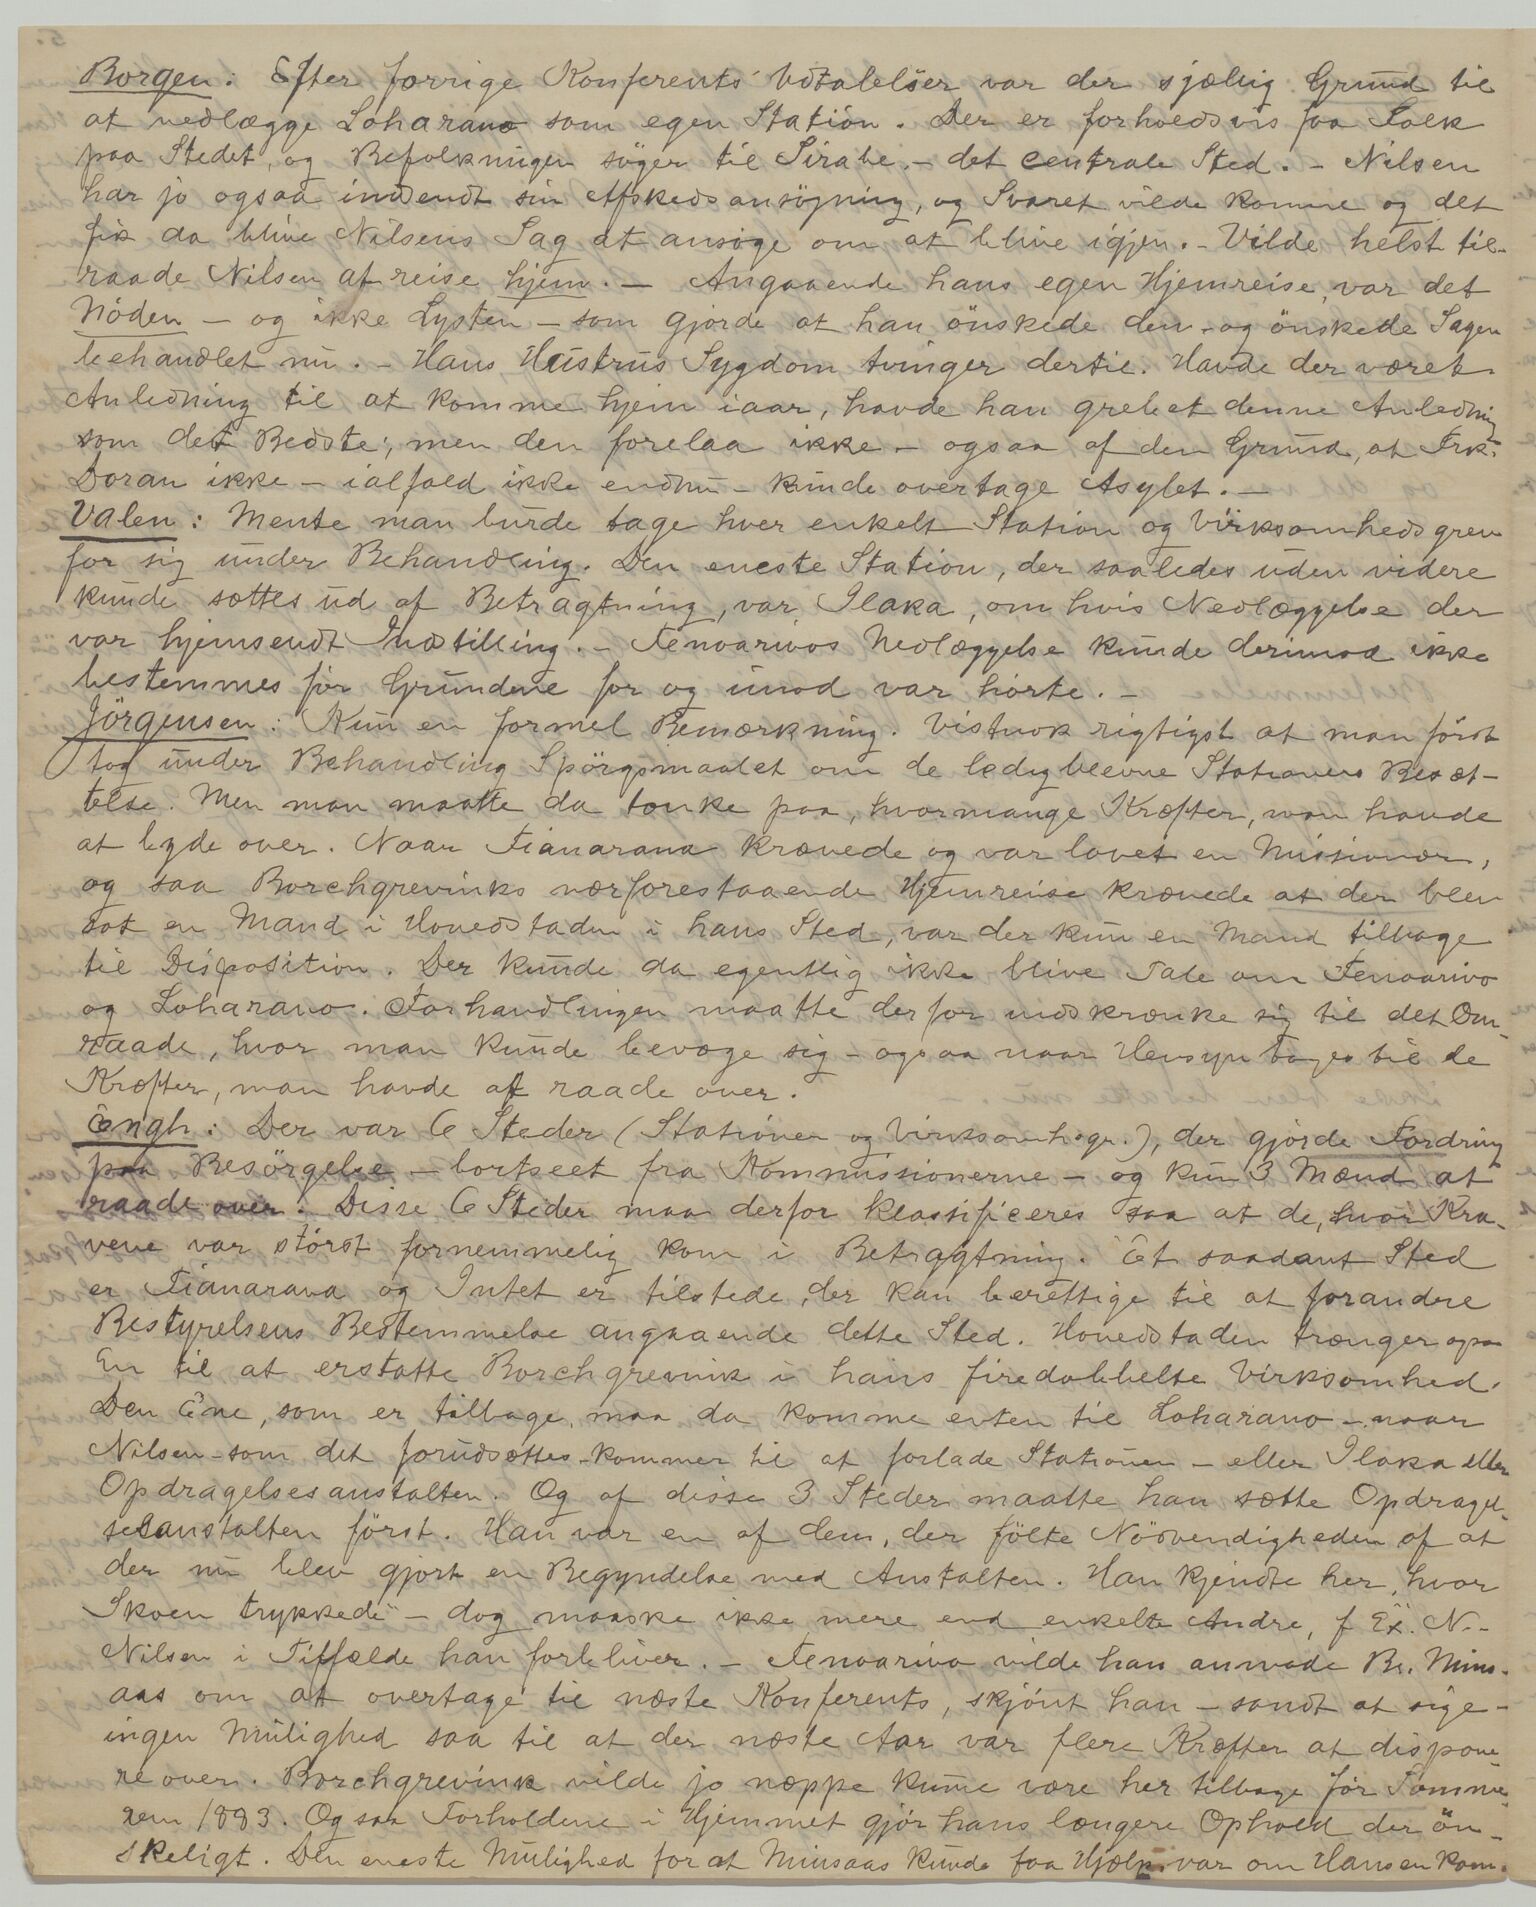 Borgen: Efter forrige Konferents' Udtalelser var der sjællig Grund til
at nedlægge Loharano som egen Station. Der er forholdsvis faa Folk
paa Stedet, og Befolkningen söger til Sirabe – det centrale Sted. – Nilsen
har jo ogsaa indsendt sin Afskedsansögning, og Svaret vilde komme og det
fik da blive Nilsens Sag at ansöge om at blive igjen. – Vilde helst til-
raade Nilsen at reise hjem. – Angaaende hans egen Hjemreise, var det
Nöden – og ikke Lysten – som gjorde at han önskede den – og önskede Sagen
behandlet nu. – Hans Hustrus Sygdom tvinger dertil. Havde der været
Anledning til at komme hjem iaar, havde han grebet denne Anledning
som det Bedste; men den forelaa ikke – ogsaa af den Grund, at Frk.
Doran ikke – ialfald ikke endnu – kunde overtage Asylet. –
Valen: Mente man burde tage hver enkelt Station og Virksomhedsgren
for sig under Behandling. Den eneste Station, der saaledes uden videre
kunde sættes ud af Betragtning, var Ilaka, om hvis Nedlæggelse der
var hjemsendt Indstilling. – Fenoarivos Nedlæggelse kunde derimod ikke
bestemmes för Grundene for og imod var hörte. –
Jörgensen: Kun en formel Bemærkning. Vistnok rigtigst at man först
tog under Behandling Spörgsmaalet om de ledigblevne Stationers Besæt-
telse. Men man maatte da tænke paa, hvormange Kræfter, man havde
at byde over. Naar Fianarana krævede og var lovet en Missionær,
og saa Borchgrevinks nærforestaaende Hjemreise krævede at der blev
sat en Mand i Hovedstaden i hans Sted, var der kun en Mand tilbage
til Disposition. Der kunde da egentlig ikke blive Tale om Fenoarivo
og Loharano. Forhandlingen maatte derfor indskrænke sig til det Om-
raade, hvor man kunde bevæge sig – ogsaa naar Hensyn toges til de
Kræfter, man havde at raade over.
Engh: Der var 6 Steder (Stationer og Virksomhsgr.), der gjorde Fordring
paa Besörgelse – bortseet fra Kommissionerne – og kun 3 Mænd at
raade over. Disse 6 Steder maa derfor klassificeres saa at de, hvor Kra-
vene var störst fornemmelig kom i Betragtning. Et saadant Sted
er Fianarana og Intet er tilstede, der kan berettige til at forandre
Bestyrelsens Bestemmelse angaaende dette Sted. Hovedstaden trænger ogsaa
En til at erstatte Borchgrevink i hans firedobbelte Virksomhed.
Den Ene, som er tilbage, maa da komme enten til Loharano – naar
Nilsen – som det forudsættes – kommer til at forlade Stationen – eller Ilaka eller
Opdragelsesanstalten. Og af disse 3 Steder maatte han sætte Opdragel-
sesanstalten först. Han var en af dem, der fölte Nödvendigheden af at
der nu blev gjort en Begyndelse med Anstalten. Han kjendte her, hvor
Skoen trykkede" – dog maaske ikke mere end enkelte Andre, f Ex. N.
Nilsen i Tilfælde han forbliver. – Fenoarivo vilde han anmode Br. Mins-
aas om at overtage til næste Konferents, skjönt han – sandt at sige –
ingen Mulighed saa til at der næste Aar var flere Kræfter at dispone-
re over. Borchgrevink vilde jo næppe kunne være her tilbage för Somme-
ren 1883. Og saa Forholdene i Hjemmet gjör hans længere Ophold der ön-
skeligt. Den eneste Mulighed for at Minsaas kunde faa Hjælp, var om Hansen kom-